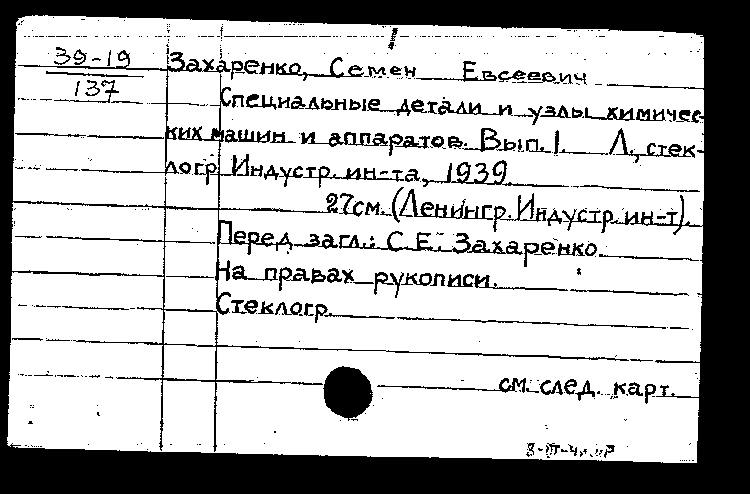 39-19
137
Захаренко, Семен Евсеевич
Специальные детали и узлы химичес-
ких машин и аппаратов. Вып. 1. Л., стек-
логр. Индустр. ин-та, 1939.
27см. (Ленингр. Индустр. ин-т).
Перед загл.: С.Е. Захаренко.
На правах рукописи.
Стеклогр.
см. след. карт.